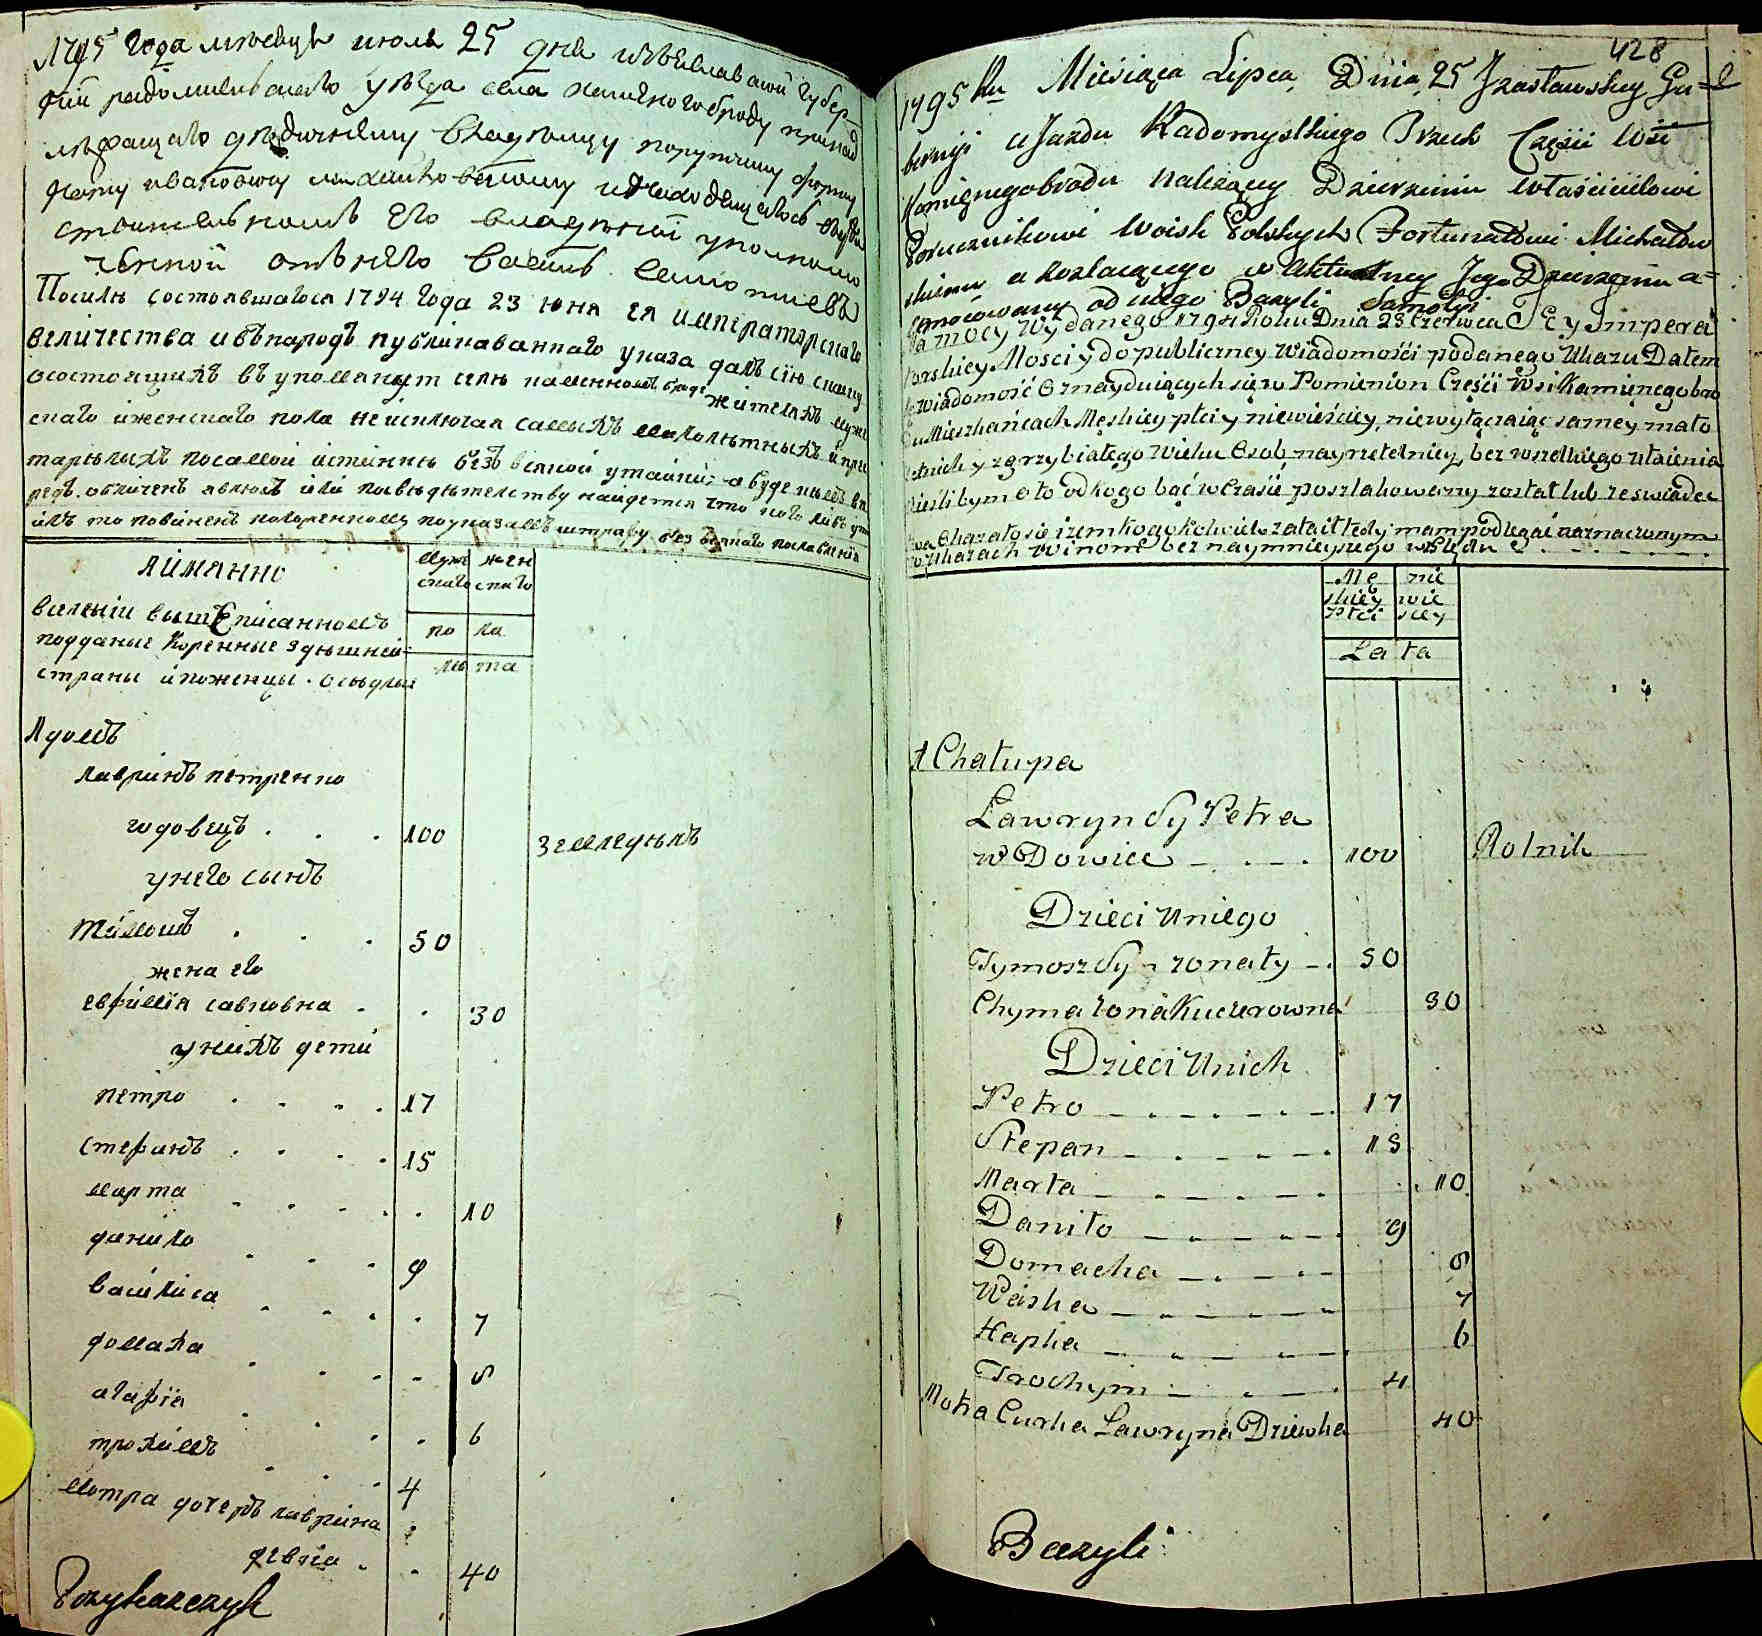 1795 года месяца июля 25 дня изъяславской губер
нии радомысльскаго уѣзда села каменногоброду принад
лежащаго
поручику
Ивановичу михалковскому
его владѣнии уполномо
ченной отънего василь самописевъ
Посилѣ состоявшагося 1794 года 23 июня ея императорскаго
величества ивънародъ публикованнаго указа далъ сию скаску
осостоящихъ въ упомянутомъ селѣ жителяхъ муже
скаго иженскаго пола неисключая самыхъ малолѣтныхъ ипре
старѣлыхъ посамой истиннѣ безъ всякой утайки; а буде кѣмъ
обличенъ явлюсь или посвидѣтельству найдется что кого либо
то повиненъ положенному поуказамъ штрафу безъ всякаго послабления
Аиманно
муже женс
скаго скаго
вселении вышеписанномъ
подданые коренные здѣшней
страны ипоженцы . оседлые
по ла
лѣ та
1 домъ
лавринъ петренко
годовецъ . . . 100 земледѣлъ
унего сынъ
Тимошъ . . . 50
жена его
евфимия савковна . . 30
унихъ дети
петро . . . . 17
стефанъ . . . . 15
марта . . . . . 10
данило . . . 9
василиса . . . . . 7
домаха . . . . 8
агафия . . . . 6
трохимъ . . . 4
мотра дочеръ лаврина
девка . . 40
Przykazczyk
428
1795 Ru Miesiąca Lipca, Dnia, 25 Izasławskiey Gu=
bernyi uJazdu Radomyslskiego Przeah Części Wsi
Kamięnegobrodu należącey Dzierżeniu własiścielowi
Porucznikowi Woisk Polskych Fortunatowi Michałow
skiemu a zostaiącego w Aktualney Jego Dzierżeniu a=
umocowany od niego Bazyli Samolys
Na mocy Wydanego 1794 Roku Dnia 23 Czerwca J E y Impera
torskiey Mosci y do publiczney wiadomości podanego Ukazu Dałem
te wiadomość Oznayduiących się w Pomienion Części Wsi Kamięnegobro
du Mieszkańcach Męskiey płci y niewieściey, niewyłączaiąc samey mało
letnich y zgrzybiałego Wieku Osob nayrzetelniey, bez wszelkiego utaienia
Jeśliby m oto od kogo bąć w czasie poszlakowany został lub ze swiadec
twa Okazało się iżem kogokolwiek zataił tedy mam podlegać naznaczonym
w Ukazach Winom bez naymnieyszego wzlędu
Mę nie
skiey wie
Płci sciey
La ta
1 Chałupa
Ławryn Sy Petra
w Dowiec _ . _ . 100 Rolnik
Dzieci Uniego
Tymosz Sy – zonaty _ . 50
Chyma żona Kuczerowna 30
Dzieci Unich
Petro _ . _ . _ . _ . 17
Stepan _ . _ . _ . 15
Marta _ . _ . _ . 10
Daniło _ . _ . _ . 9
Domacha _ . _ . _ 8
Waska _ . _ . _ 7
Hapka _ . _ . _ 6
Trochym _ . _ . 4
Motra Curka Ławryna Dziewka 40
Bazyli